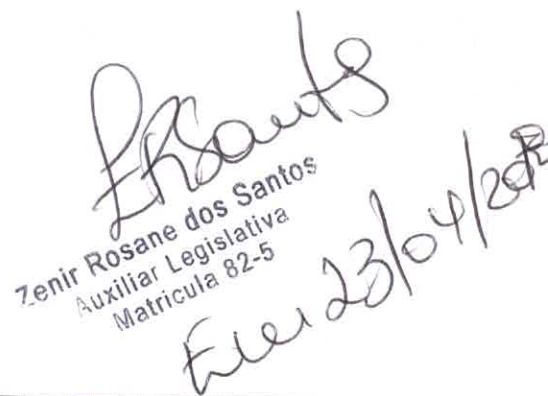 ZRSants
Zenir Rosane dos Santos
Auxiliar Legislativa
Matricula 82-5
Em 23/04/